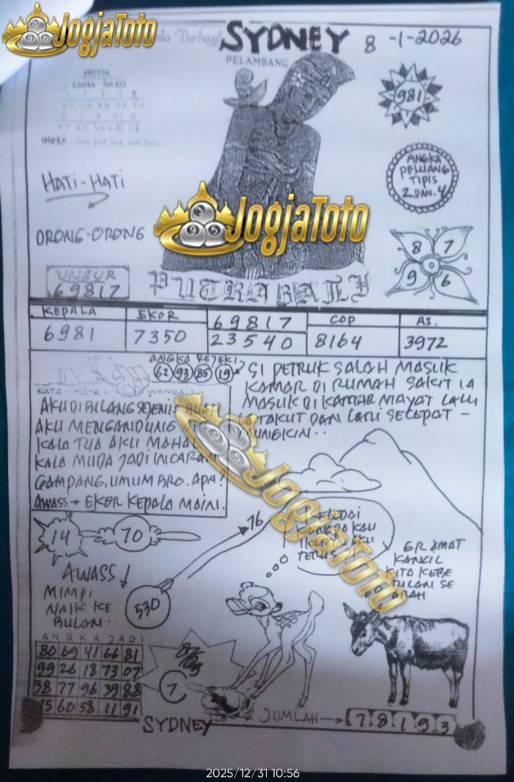 JogjaToto
SYDNEY 8-1-2026
PELAMBANG
981
LAMA-BARU
INDEX
HATI-HATI
ANGKA
PELUANG
TIPIS
2 DAN 4
ORONG-ORONG
JogjaToto
8 7
9 6
UNSUR
69817
PUTRA BALI
KEPALA EKOR 69817 COP AS.
6981 7350 23540 8164 3972
ANGKA REJEKI
62 93 85 19
SI PETRUK SALAH MASUK
KAMAR DI RUMAH SAKIT IA
MASUK DI KAMAR MAYAT LALU
TAKUT DAN LARI SECEPAT-
MUNGKIN..
KATA-KATA
AKU DIBILANG SEJENIS
AKU MENGANDUNG
KALA TUA AKU
KALA MUDA JADI INCARAN
GAMPANG.UMUM BRO. APA?
AWASS → EKOR KEPALA MAIN.
JogjaToto
14 70
76
KAU
TERUS
GRAMAT
KANCIL
KITA KEBE
TULAN SE
ARAH
AWASS!
MIMPI
NAIK KE
BULAN.
530
ANGKA JADI
80 69 41 66 81
99 26 18 73 07
38 77 96 39 88
15 60 58 11 91
7
SYDNEY
JUMLAH → 7 8 1 9 3
2025/12/31 10:56